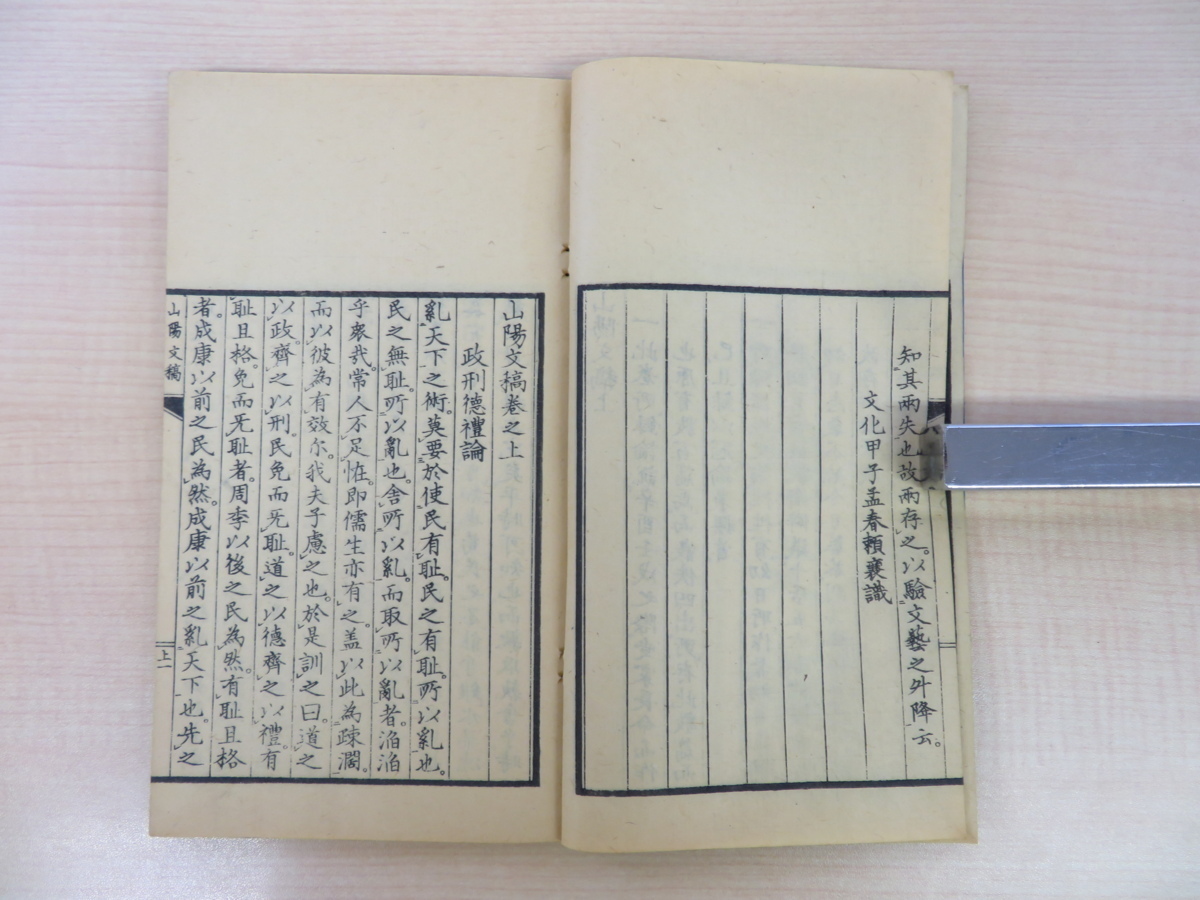 知其兩失也故兩存之。以驗文藝之升降云。
文化甲子孟春賴襄識
山陽文稿卷之上
政刑德禮論
亂天下之術。莫要於使民有恥。民之有恥。所以亂也。
民之無恥。所以亂也。舍所以亂。而取所以亂者。滔滔
乎衆哉。常人不足怪。即儒生亦有之。盖以此為疎濶。
而以彼為有效尔。我夫子慮之也。於是訓之曰。道之
以政。齊之以刑。民免而旡恥。道之以德。齊之以禮。有
恥且格。免而旡恥者。周季以後之民為然。有恥且格
者。成康以前之民為然。成康以前之亂天下也。先之
山陽文稿
上一